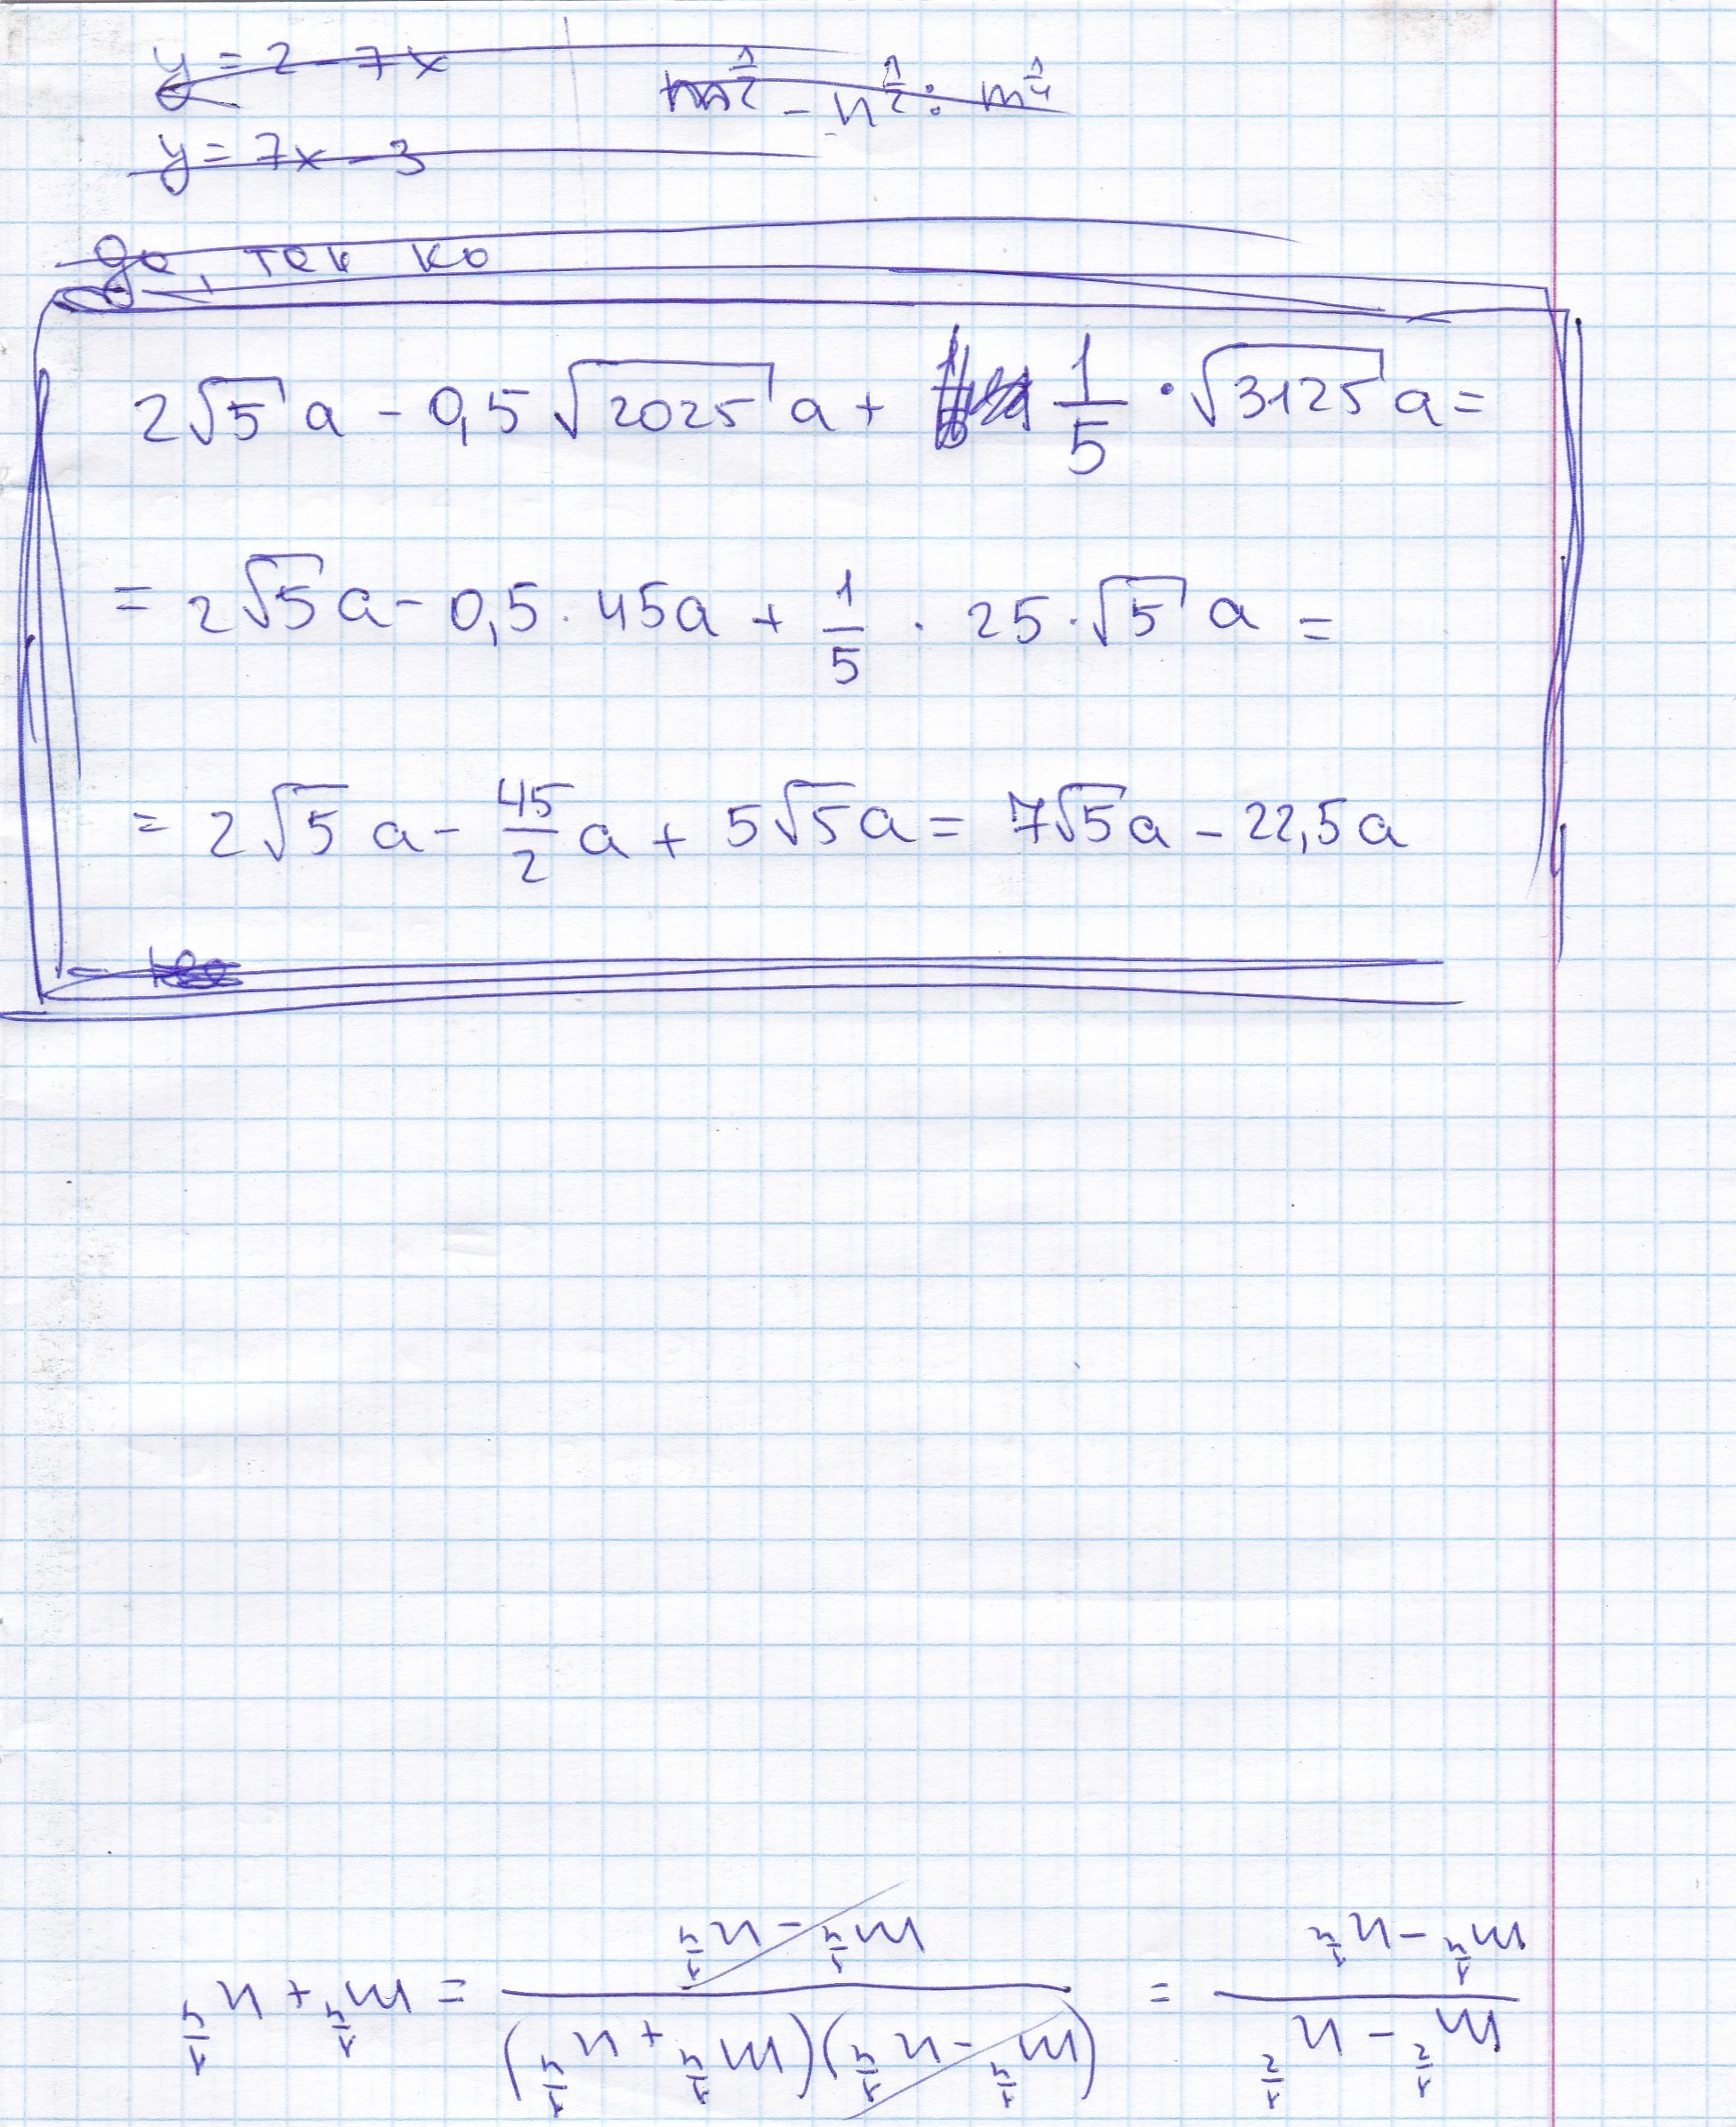 y = 2 - 7x
m^{1/2} - n^{1/2} : m^{1/4}
y = 7x - 3
да, так ко
2√5 a - 0,5 √2025 a + 1/5 · √3125 a =
= 2√5 a - 0,5 · 45a + 1/5 · 25 · √5 a =
= 2√5 a - 45/2 a + 5√5 a = 7√5 a - 22,5a
=
(m^{1/2} - n^{1/2}) / (m^{1/4} - n^{1/4}) = ((m^{1/4} - n^{1/4})(m^{1/4} + n^{1/4})) / (m^{1/4} - n^{1/4}) = m^{1/4} + n^{1/4}